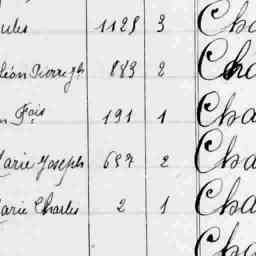 ules 1129 3 Cha
léon Pierre Jh 883 2 Cha
n Fçois 191 1 Cha
Marie Joseph 697 2 Cha
Marie Charles 2 1 Cha
Cha